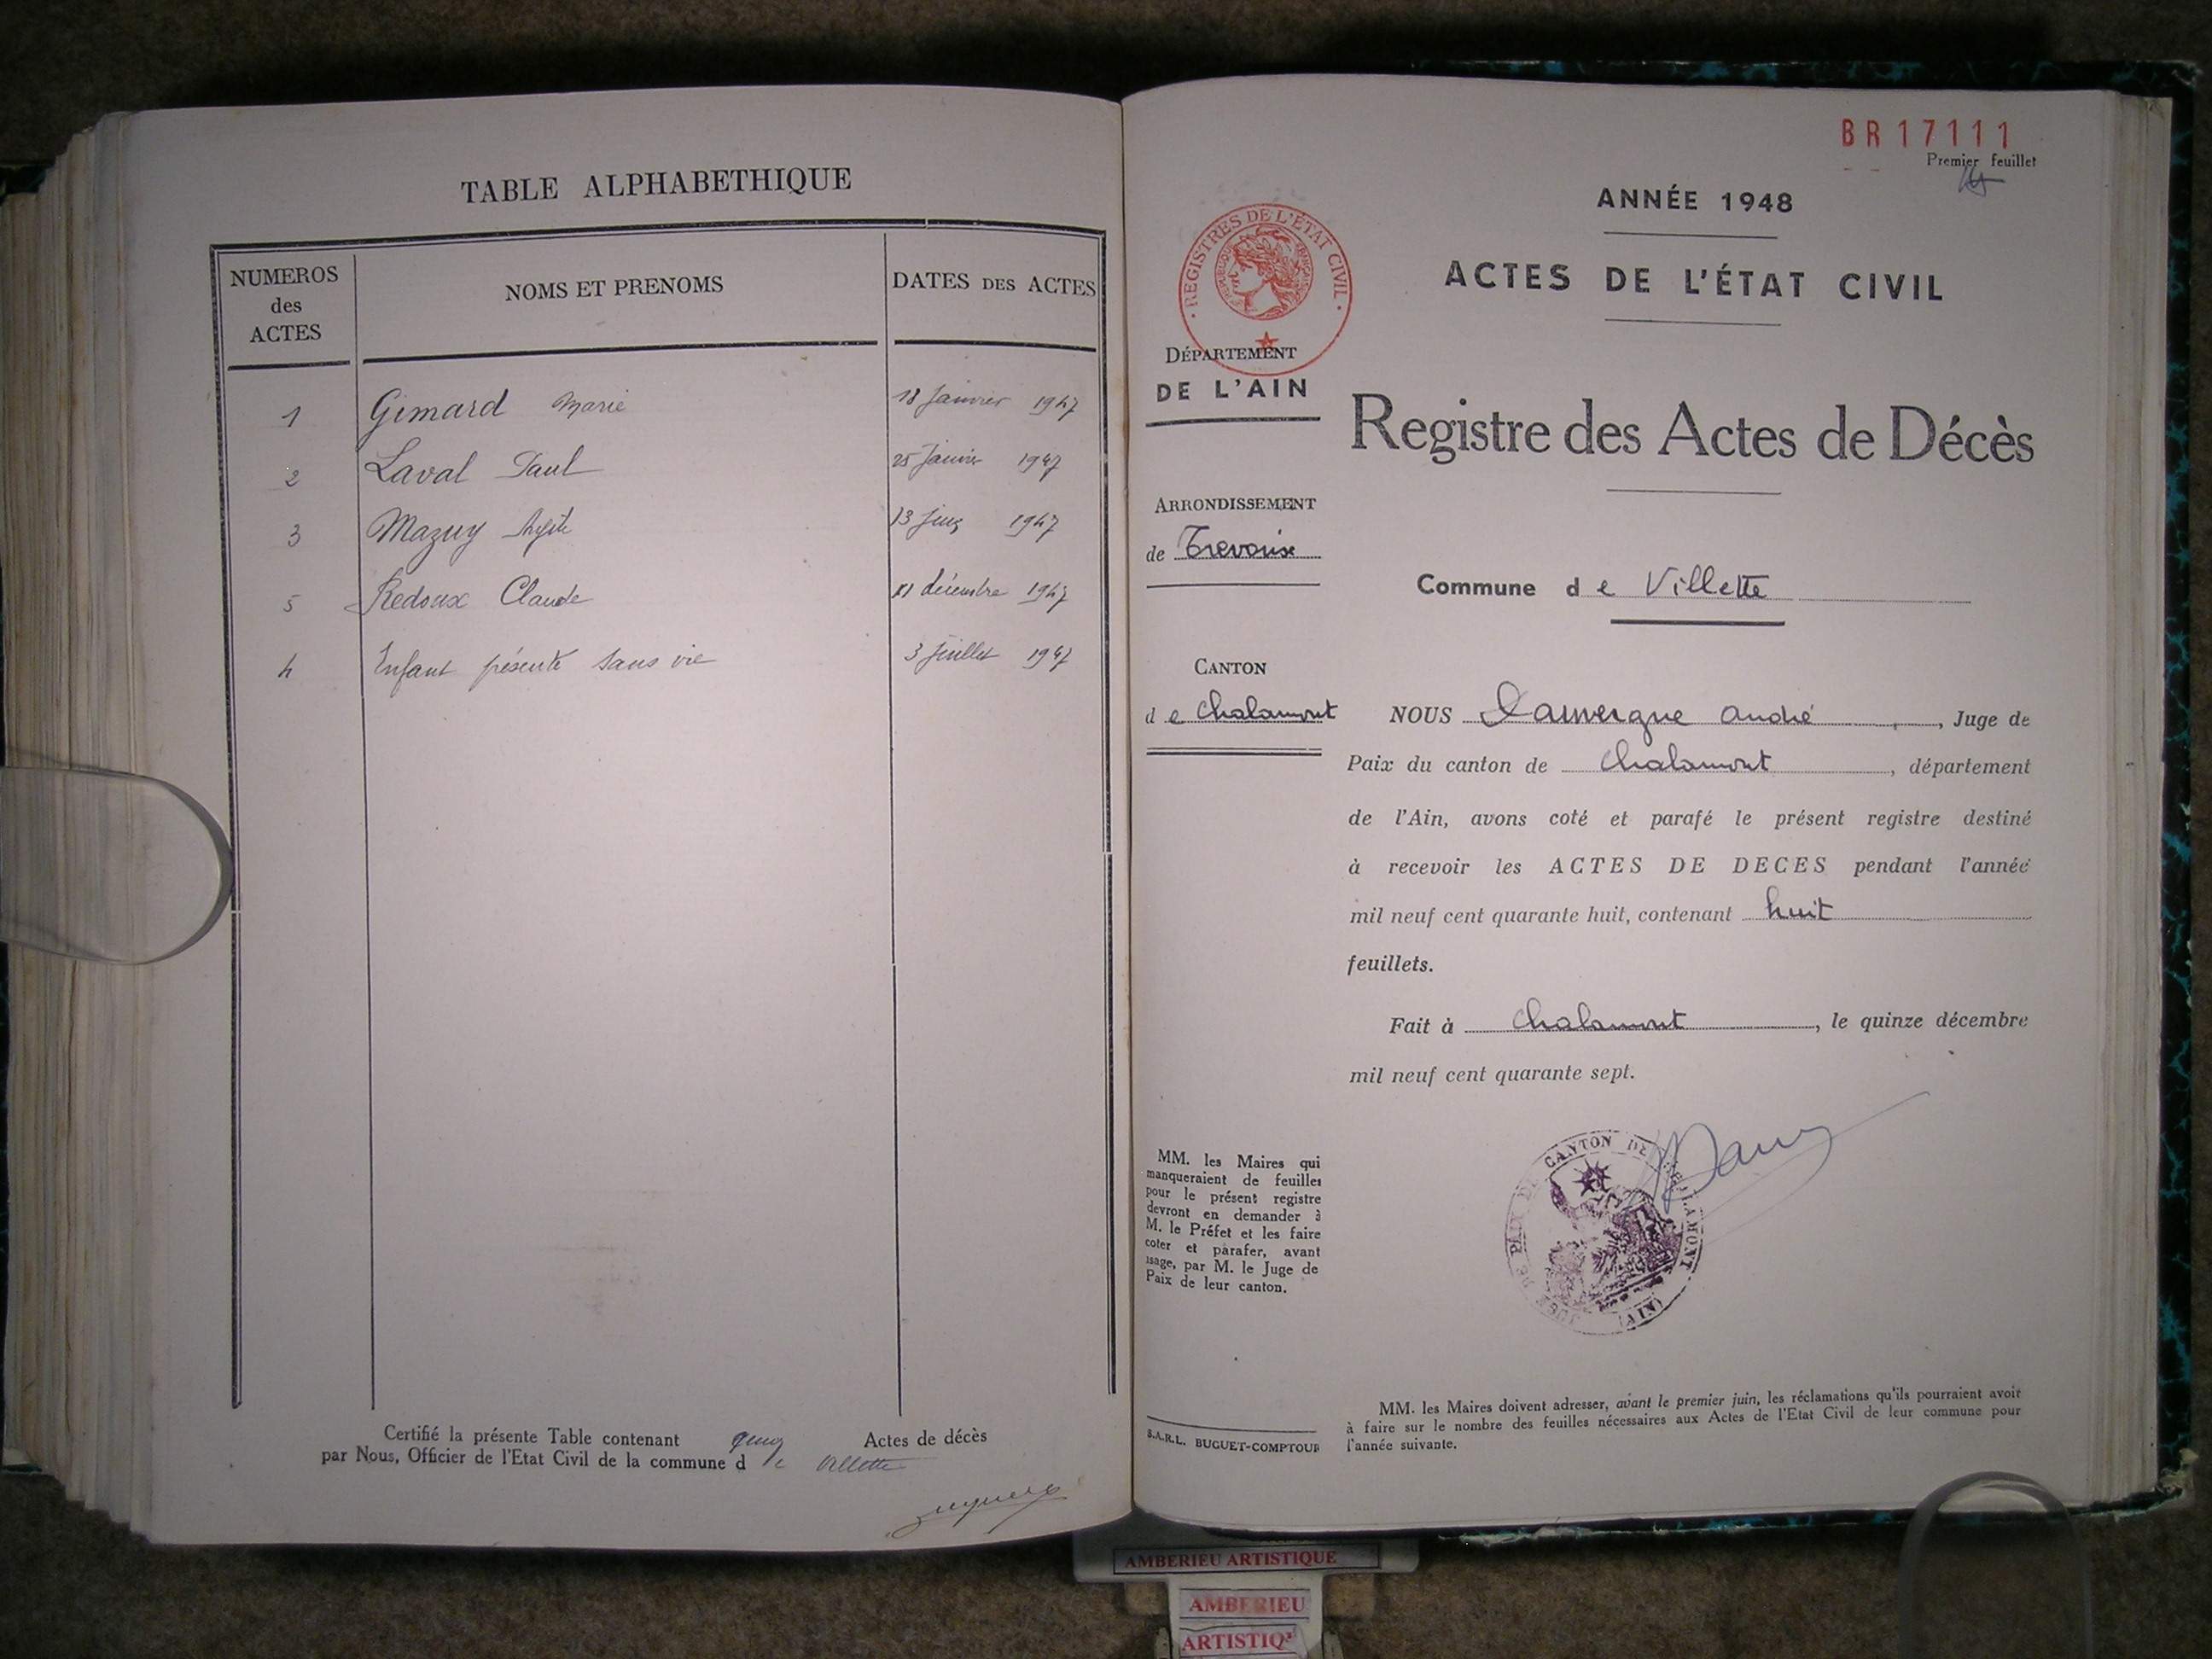 TABLE ALPHABETHIQUE
NUMEROS des ACTES
NOMS ET PRENOMS
DATES DES ACTES
1 Gimard Marie 18 Janvier 1947
2 Laval Paul 25 Janvier 1947
3 Mazuy 13 Juin 1947
5 Redoux Claude 11 décembre 1947
4 Enfant présenté sans vie 3 Juillet 1947
Certifié la présente Table contenant Actes de décès
par Nous, Officier de l'Etat Civil de la commune d e Villette
BR17111
Premier feuillet
ANNÉE 1948
ACTES DE L'ÉTAT CIVIL
· REGISTRES DE L'ÉTAT CIVIL ·
RÉPUBLIQUE FRANÇAISE
DÉPARTEMENT
DE L'AIN
Registre des Actes de Décès
ARRONDISSEMENT
de Trevoux
Commune d e Villette
CANTON
d e Chalamont
NOUS Dauvergne André, Juge de
Paix du canton de Chalamont, département
de l'Ain, avons coté et parafé le présent registre destiné
à recevoir les ACTES DE DECES pendant l'année
mil neuf cent quarante huit, contenant huit
feuillets.
Fait à Chalamont, le quinze décembre
mil neuf cent quarante sept.
MM. les Maires qui
manqueraient de feuilles
pour le présent registre
devront en demander à
M. le Préfet et les faire
coter et parafer, avant
usage, par M. le Juge de
Paix de leur canton.
CANTON DE CHALAMONT
(AIN)
S.A.R.L. BUGUET-COMPTOUR
MM. les Maires doivent adresser, avant le premier juin, les réclamations qu'ils pourraient avoir
à faire sur le nombre des feuilles nécessaires aux Actes de l'Etat Civil de leur commune pour
l'année suivante.
AMBERIEU ARTISTIQUE
AMBERIEU
ARTISTIQ